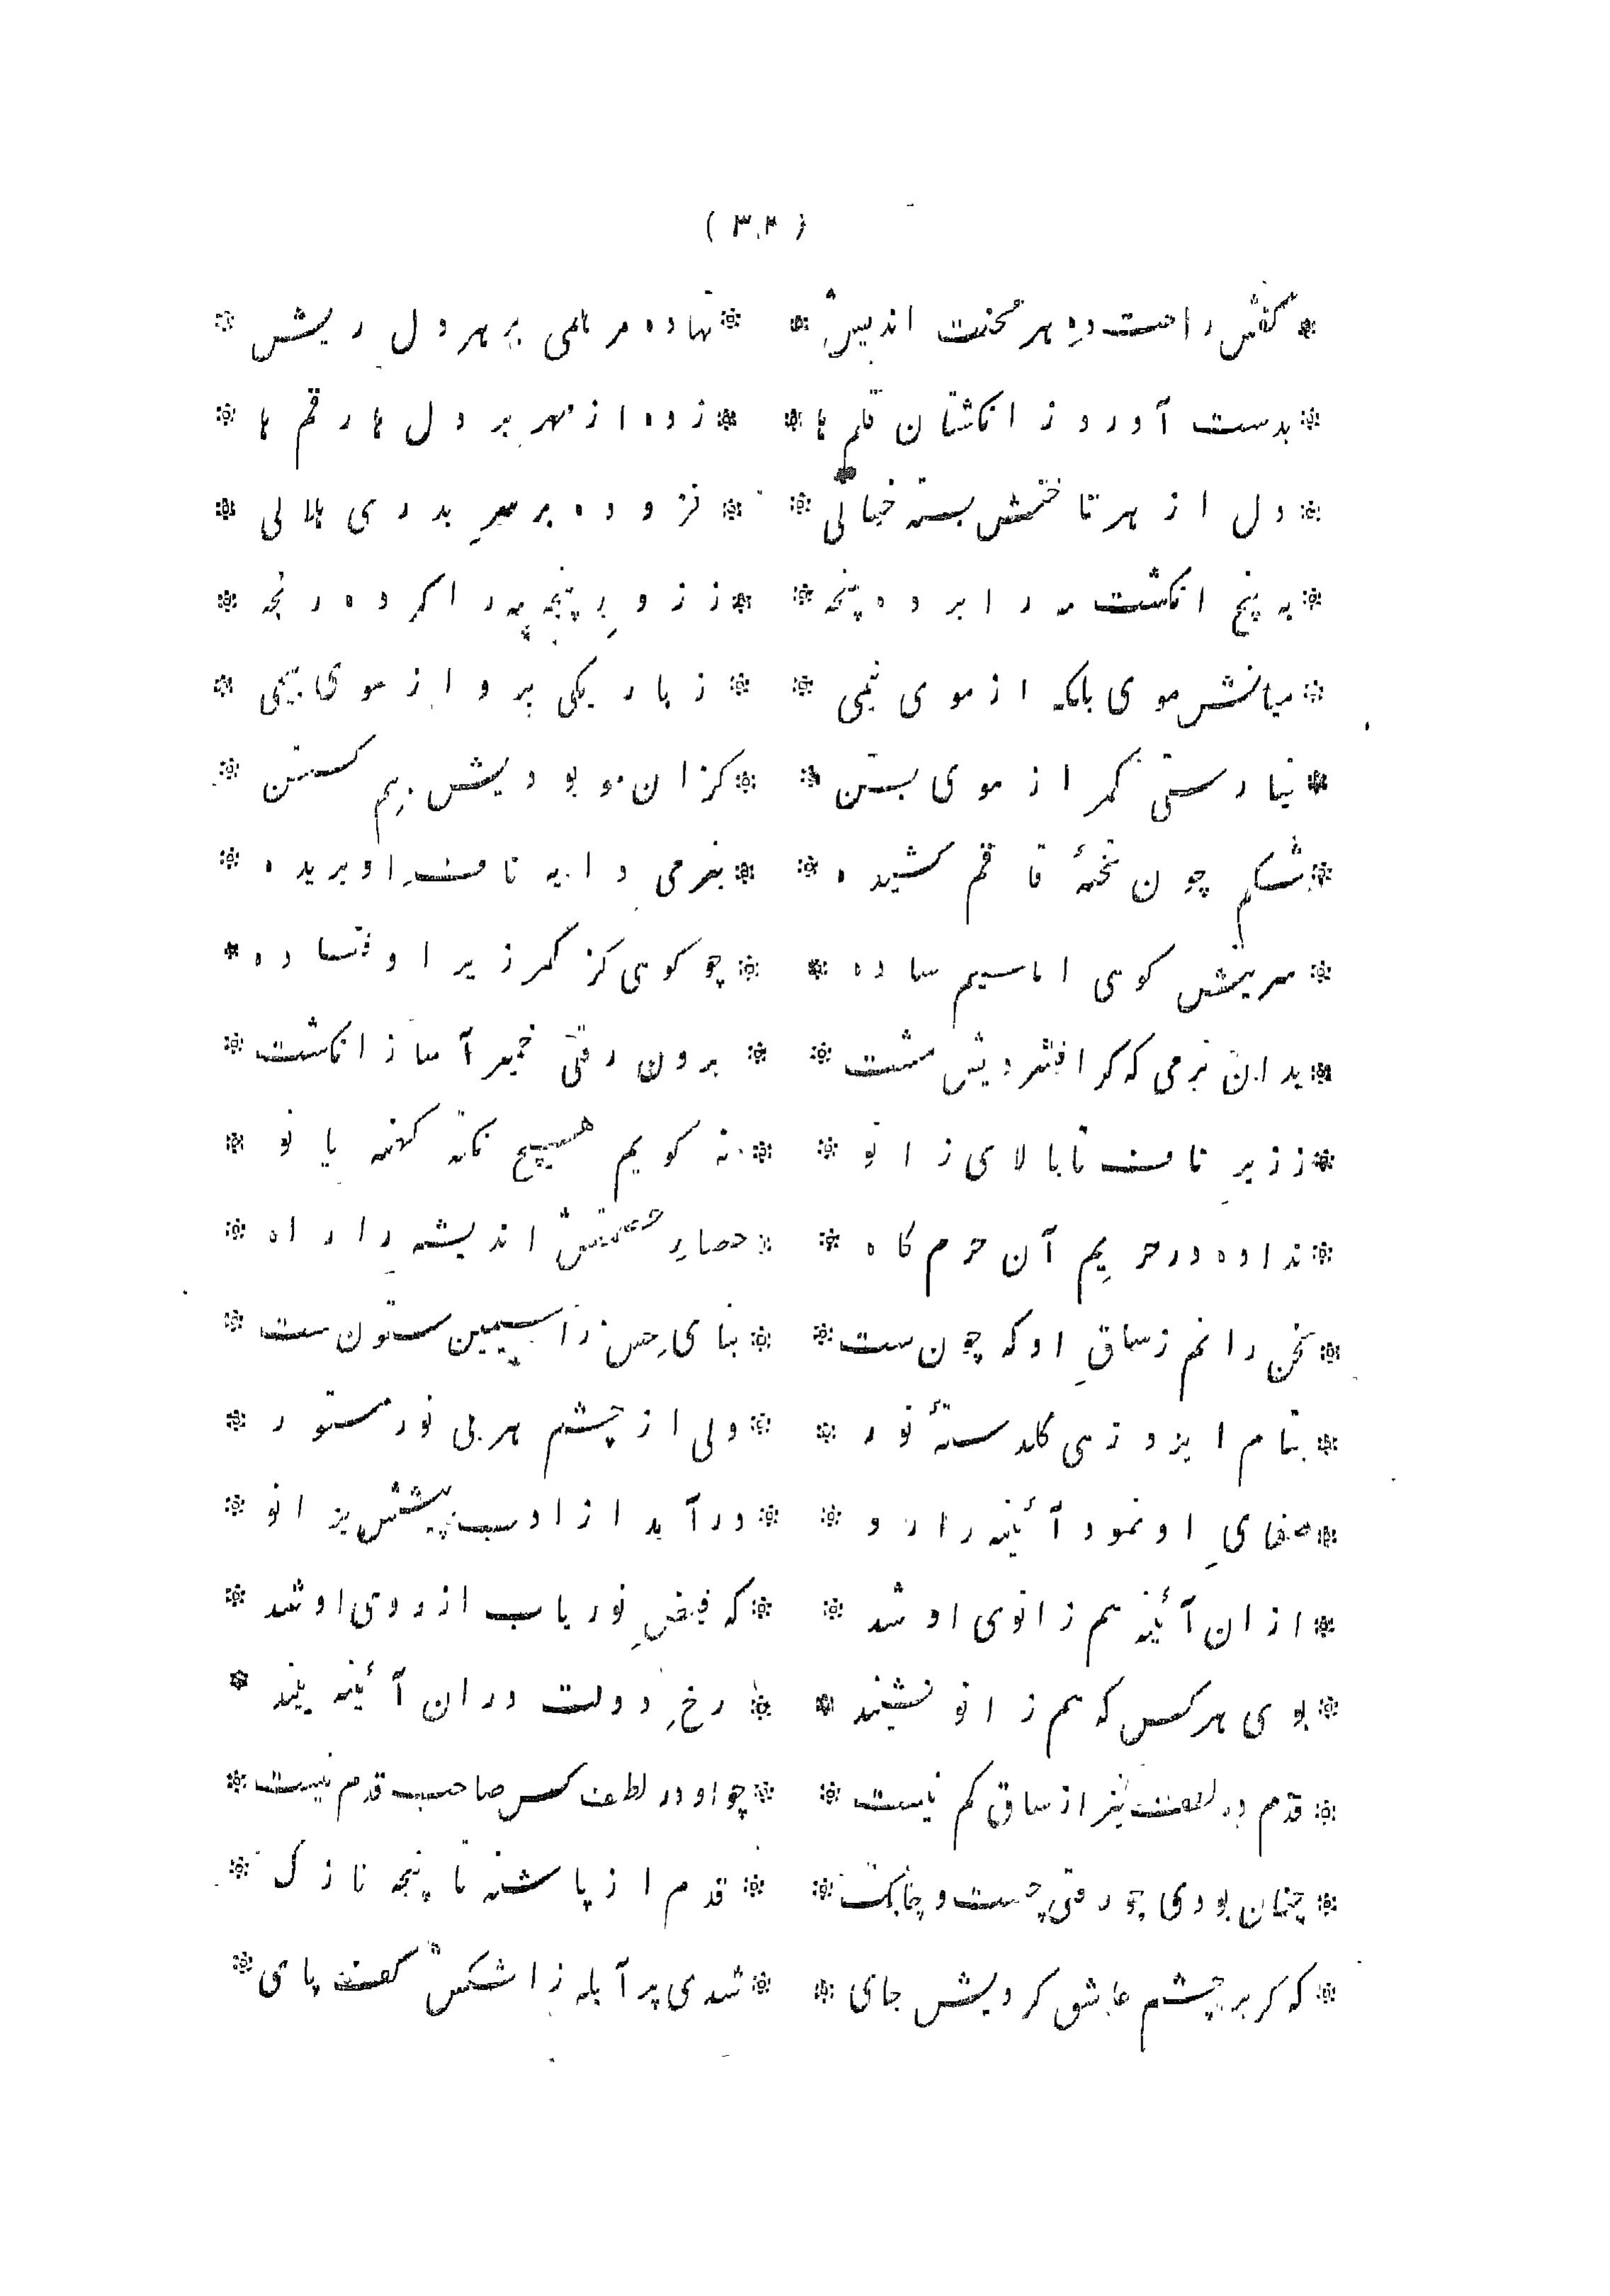 ( ۳۴ )
* کفش راحت دهِ هر محنت اندیش * * نهاده مرهمی بر هر دل ریش *
* بدست آورد ز انکشتان قلم ها * * زده از مهر بر دل ها رقم ها *
* دل از هر ناخنش بسته خیالی * * فزوده بر سرِ بدری هلالی *
* به پنج انکشت مه را برده پنجه * * ز زورِ پنجه مه را کرده رنجه *
* میانش موی بلکه از موی نیمی * * ز باریکی برو از موی بیمی *
* نیارستی کمر از موی بستن * * کزان مو بودیش بیم کستن *
* شکم چون تختهٔ قاقم کشیده * * بنرمی دایه نافِ او بریده *
* سرینش کوهی اما سیم ساده * * چو کوهی کز کمر زیر اوفتاده *
* بدان نرمی که کر افشردیش مشت * * برون رفتی خمیر آسا ز انکشت *
* ز زیرِ ناف تا بالای زانو * * نه کویم هیچ نکته کهنه یا نو *
* نداده در حریمِ آن حرم کاه * * حصارِ عصمتش اندیشه را راه *
* سخن رانم ز ساقِ او که چون ست * * بنای حسن را سیمین ستون ست *
* بنام ایزد زهی کلدستهٔ نور * * ولی از چشم هر بی نور مستور *
* صفایِ او نمود آئینه را رو * * درآمد از ادب پیشش بزانو *
* از ان آئینه هم زانوی او شد * * که فیضِ نور یاب از روی او شد *
* بوی هر کس که هم زانو نشیند * * رخِ دولت دران آئینه بیند *
* قدم در لطف نیز از ساق کم نیست * * چو او در لطف کس صاحب قدم نیست *
* چنان بودی چو رفتی چست و چابک * * قدم از پاشنه تا پنجه نازک *
* که کر بر چشم عاشق کردیش جای * * شدی پر آبله ز اشکش کف پای *